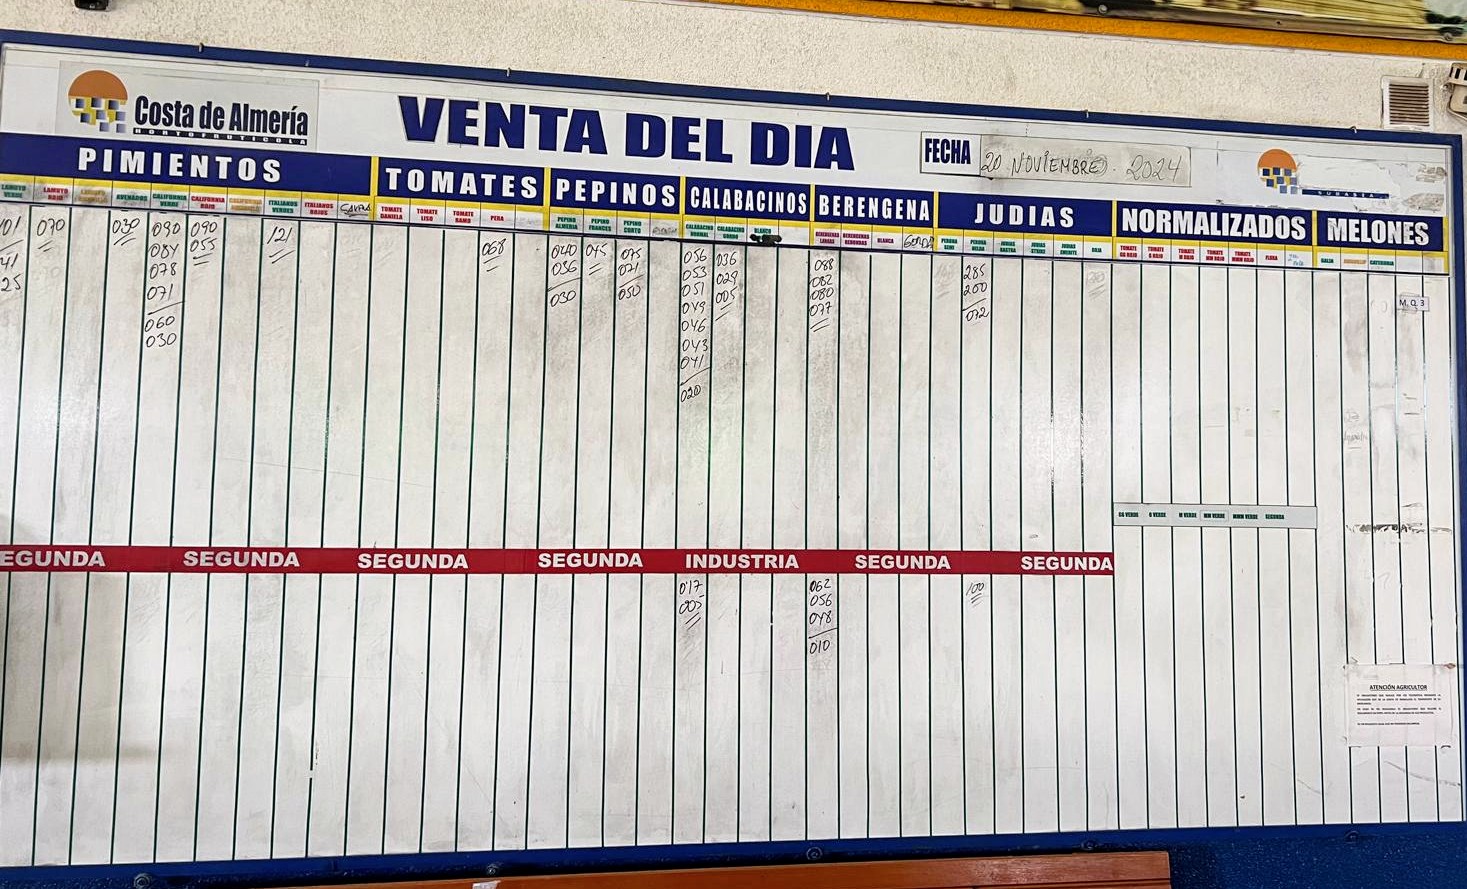 Costa de Almería
HORTOFRUTICOLA
VENTA DEL DIA
FECHA
20 NOVIEMBRE . 2024
SUBASTA
PIMIENTOS
TOMATES
PEPINOS
CALABACINOS
BERENGENA
JUDIAS
NORMALIZADOS
MELONES
LAMUYO VERDE
LAMUYO ROJO
ASURADOS
CALIFORNIA VERDE
CALIFORNIA ROJO
ITALIANOS VERDES
ITALIANOS ROJOS
TOMATE DANIELA
TOMATE LISO
TOMATE RAMO
PERA
PEPINO ALMERIA
PEPINO FRANCES
PEPINO CORTO
CALABACINO NORMAL
CALABACINO GORDO
BLANCO
BERENGENAS LARGAS
BERENGENAS REDONDAS
BLANCA
GORDA
PERONA SEMI
PERONA ROJA
JUDIAS STRIKE
JUDIAS EMERITE
RAJA
TOMATE GG ROJO
TOMATE G ROJO
TOMATE M ROJO
TOMATE MM ROJO
TOMATE MMM ROJO
FLORA
GALIA
CATEGORIA
101
41
25
070
030
090
084
078
071
060
030
090
055
121
068
040
036
030
045
075
071
050
056
053
051
049
046
043
041
020
036
029
005
088
082
080
077
285
200
072
M.Q.3
GG VERDE
G VERDE
M VERDE
MM VERDE
MMM VERDE
SEGUNDA
EGUNDA
SEGUNDA
SEGUNDA
SEGUNDA
INDUSTRIA
SEGUNDA
SEGUNDA
017
007
062
056
048
010
100
ATENCIÓN AGRICULTOR